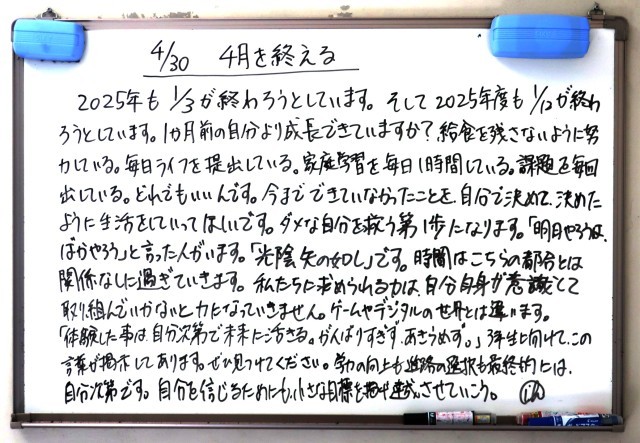 4/30 4月を終える
2025年も 1/3が終わろうとしています。そして2025年度も 1/12が終わ
ろうとしています。1か月前の自分より成長できていますか？給食を残さないように努
力している。毎日ライフを提出している。家庭学習を毎日1時間している。課題を毎回
出している。どれでもいいんです。今までできていなかったことを、自分で決めて、決めた
ように生活をしていってほしいです。ダメな自分を救う第1歩になります。「明日やろうは、
ばかやろう」と言った人がいます。「光陰矢の如し」です。時間はこちらの都合とは
関係なしに過ぎていきます。私たちに求められる力は、自分自身が意識して
取り組んでいかないと力になっていきません。ゲームやデジタルの世界とは違います。
「体験した事は自分次第で未来に活きる。がんばりすぎず、あきらめず。」3年生に向けて、この
言葉が掲示してあります。ぜひ見つけてください。学力の向上も進路の選択も最終的には、
自分次第です。自分を信じるためにも、小さな目標を達成させていこう。